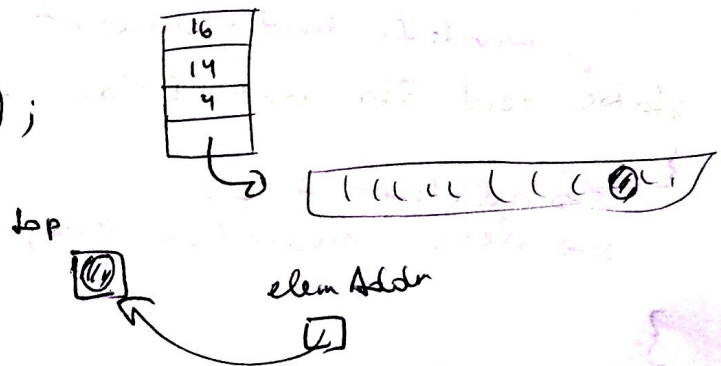 16
14
4
) ;
top
elem Addr